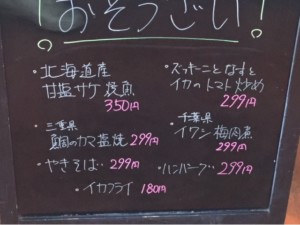 !おそうざい!
・北海道産
甘塩サケ焼魚
350円
・ズッキーニとなすと
イカのトマト炒め
299円
・三重県
真鯛のカマ塩焼 299円
・千葉県
イワシ梅肉煮
299円
・やきそば 299円
・ハンバーグ 299円
・イカフライ 180円